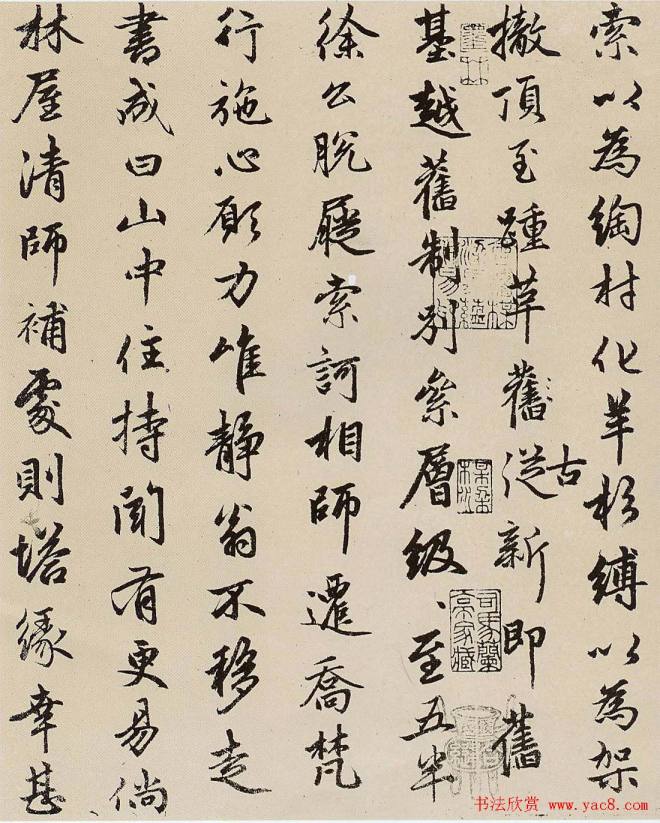 索以為綯村化羊杉縛以為架
撤頂至踵革舊从古新即舊
基越舊制別叅層級、至五半
徐公脫屣索訶相師遷喬梵
行施心願力唯靜翁不移走
書成曰山中住持聞有更易倘
林屋清師補處則塔緣幸甚
司馬蘭亭家藏
书法欣赏 www.yac8.com